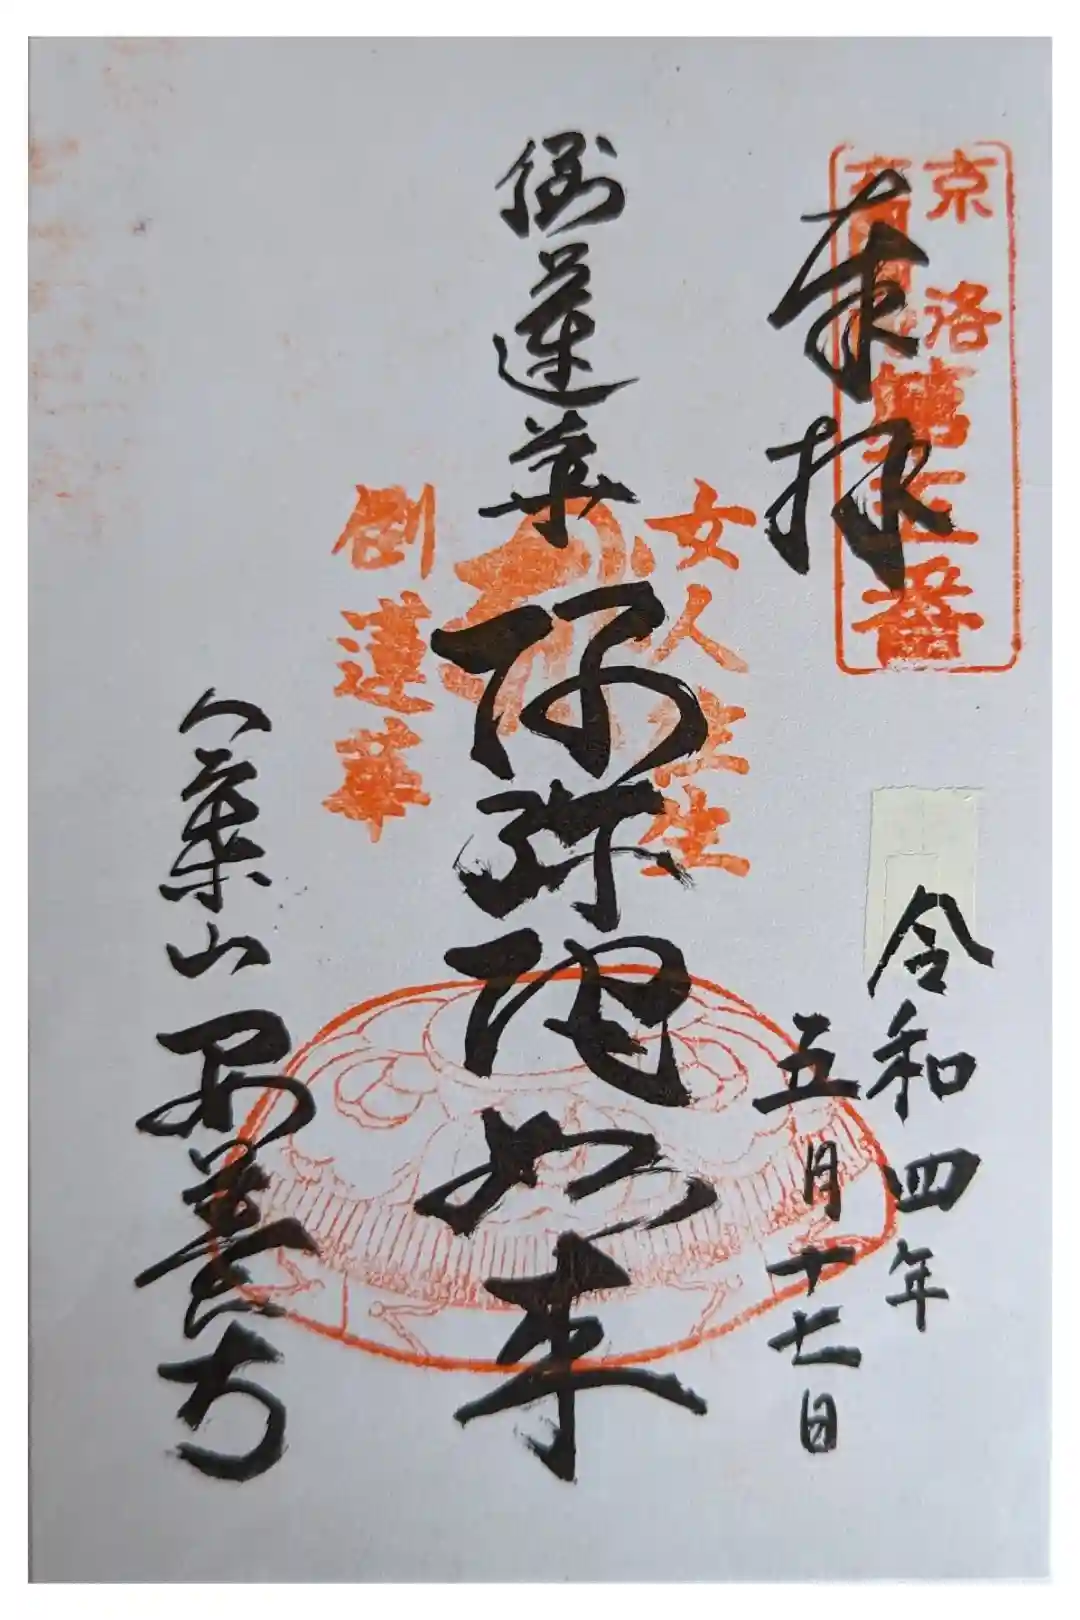 奉拝
京洛
第三番
令和四年
五月十七日
倒蓮華
阿弥陀如来
女人往生
倒蓮華
八葉山 安養寺